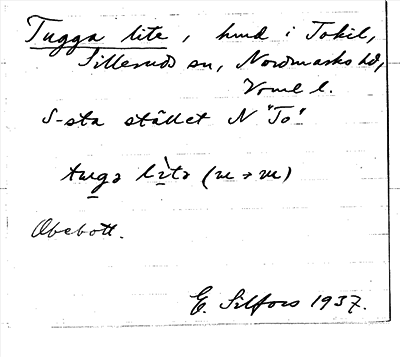 Tugga lite, hmd i Tokil,
Silleruds sn, Nordmarks hd,
Vrml l.
S-sta stället N "To"
tuga lita (u → u)
Obebott.
E. Silfors 1937.